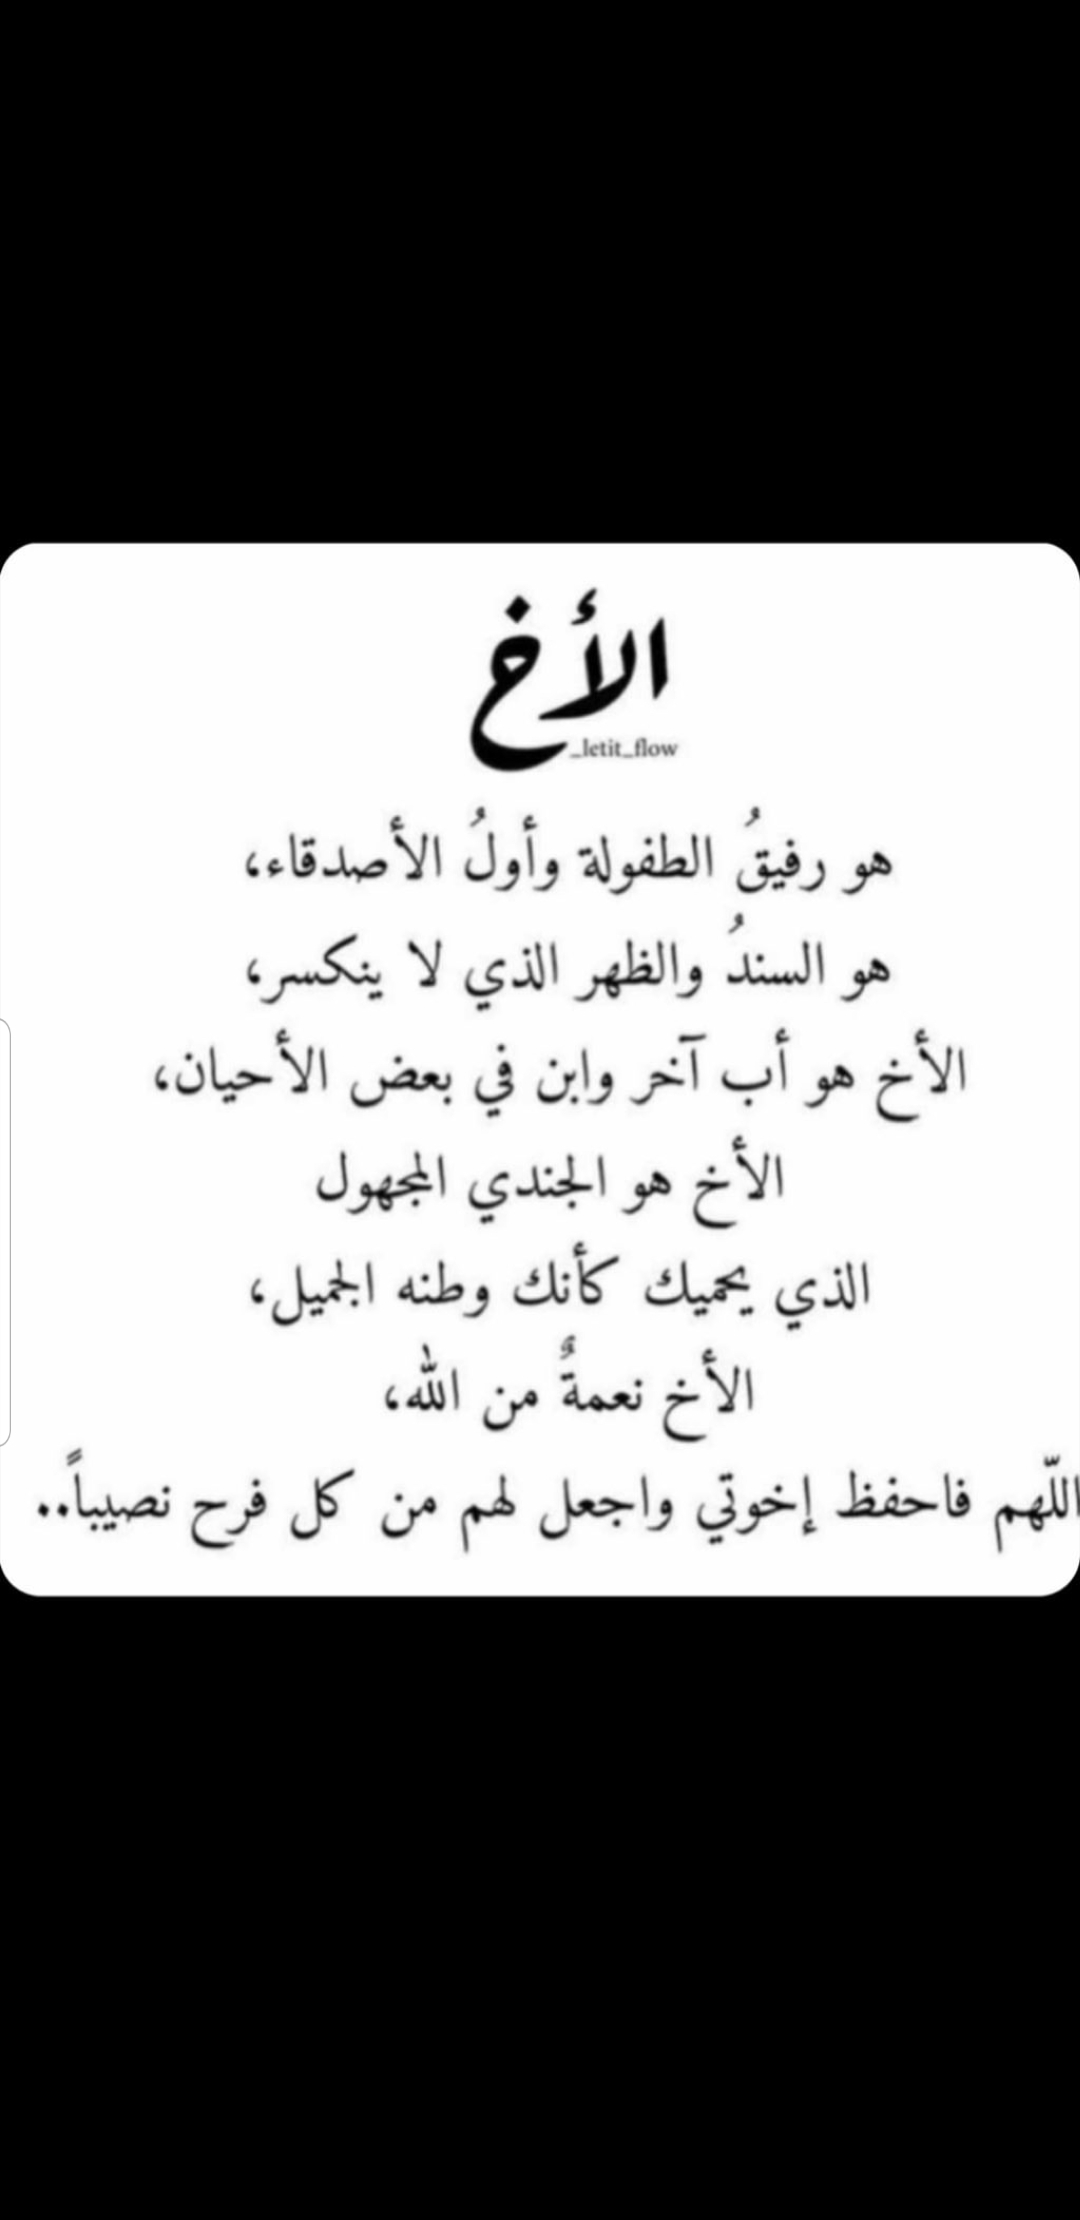 الأخ
_letit_flow
هو رفيقُ الطفولة وأولُ الأصدقاء،
هو السندُ والظهر الذي لا ينكسر،
الأخ هو أب آخر وابن في بعض الأحيان،
الأخ هو الجندي المجهول
الذي يحميك كأنك وطنه الجميل،
الأخ نعمةٌ من الله،
اللّهم فاحفظ إخوتي واجعل لهم من كل فرح نصيباً..